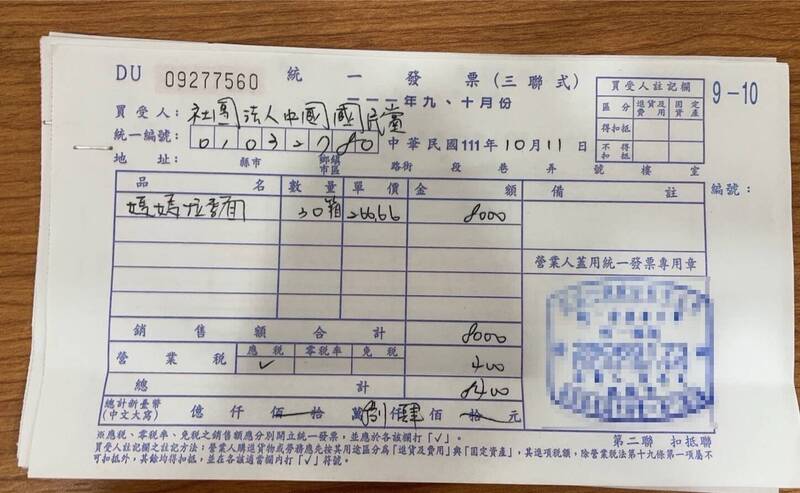 DU 09277560 統一發票(三聯式)
一一一年九、十月份
9-10
買受人註記欄
區分 進貨及費用 固定資產
得扣抵
不得扣抵
買受人: 社團法人中國國民黨
統一編號: 01032780 中華民國111年10月11日
地址: 縣市 鄉鎮市區 路街 段 巷 弄 號 樓 室
編號:
品名 數量 單價 金額 備註
30箱 266.66 8000
營業人蓋用統一發票專用章
銷售額合計 8000
營業稅 應稅 零稅率 免稅 400
✓
總計 8400
總計新臺幣(中文大寫) 億 仟 佰 拾 萬 捌仟肆佰 拾 元
※應稅、零稅率、免稅之銷售額應分別開立統一發票,並應於各該欄打「√」。
第二聯 扣抵聯
買受人註記欄之註記方法:營業人購進貨物或勞務應先按其用途區分為「進貨及費用」與「固定資產」,其進項稅額,除營業稅法第十九條第一項屬不
可扣抵外,其餘均得扣抵,並在各該適當欄內打「√」符號。